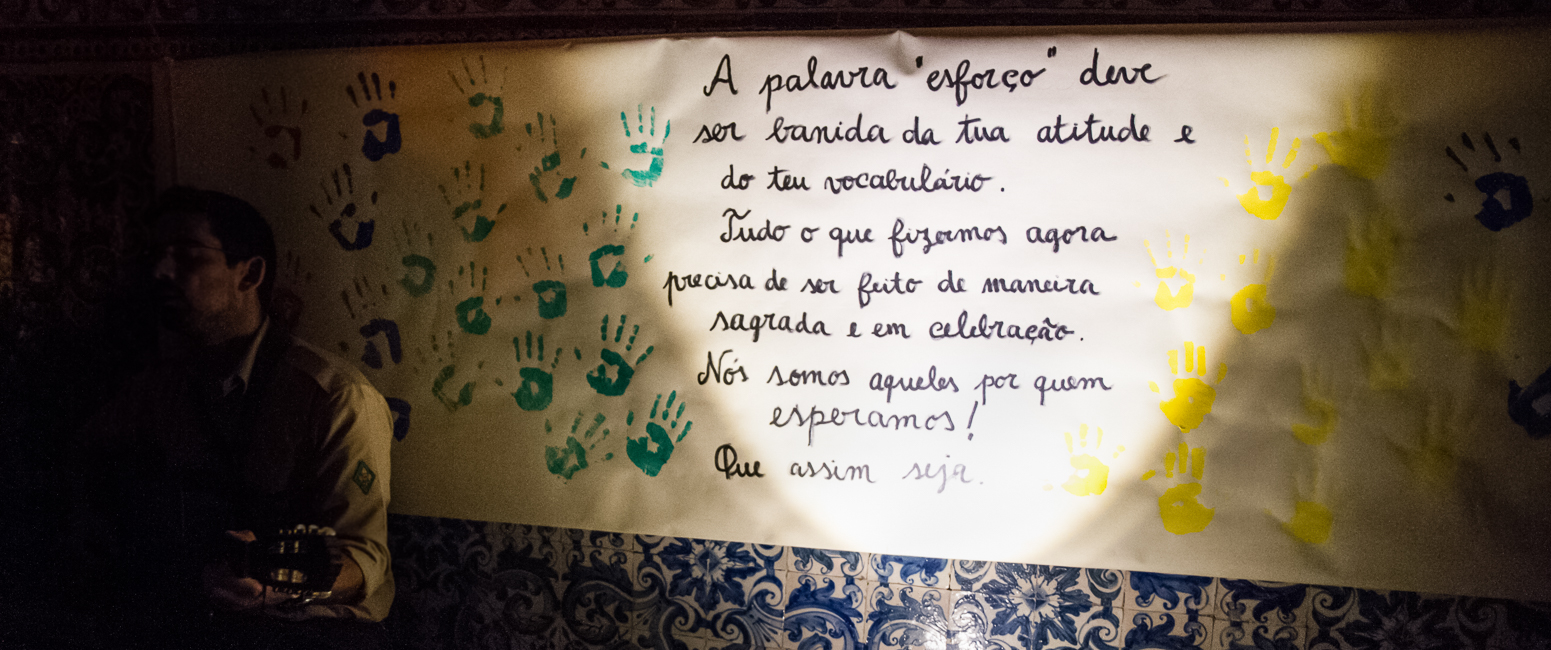 A palavra "esforço" deve
ser banida da tua atitude e
do teu vocabulário.
Tudo o que fizermos agora
precisa de ser feito de maneira
sagrada e em celebração.
Nós somos aqueles por quem
esperamos!
Que assim seja.